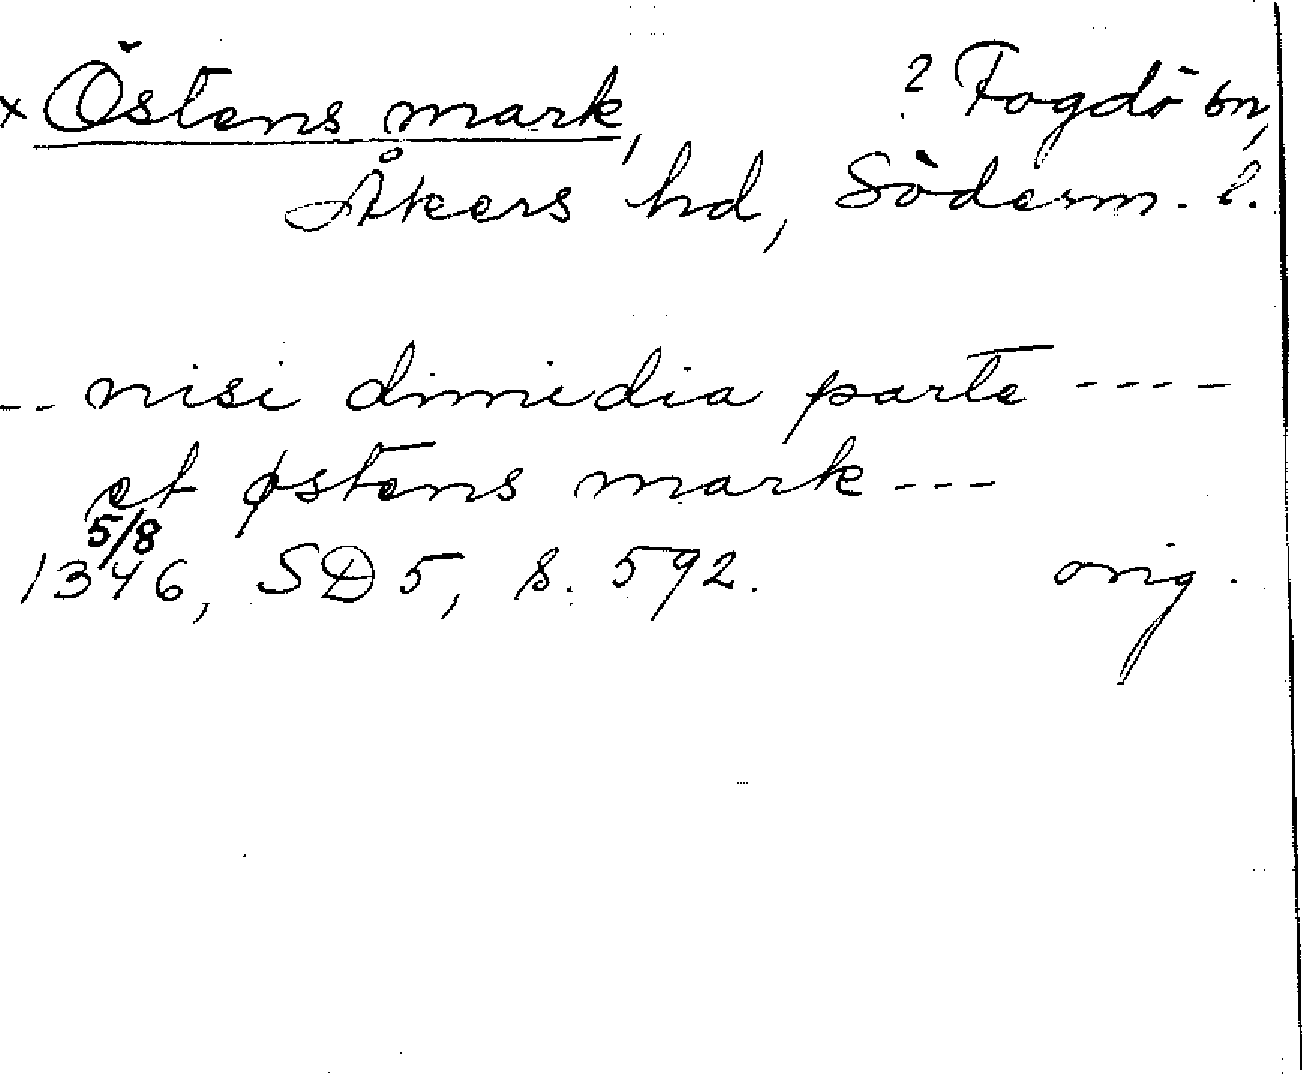 x Östens mark, ? Fogdö sn,
Åkers hd, Söderm. l.
-- nisi dimidia parte ----
et østens mark ---
5/8
1346, SD 5, s. 592. orig.